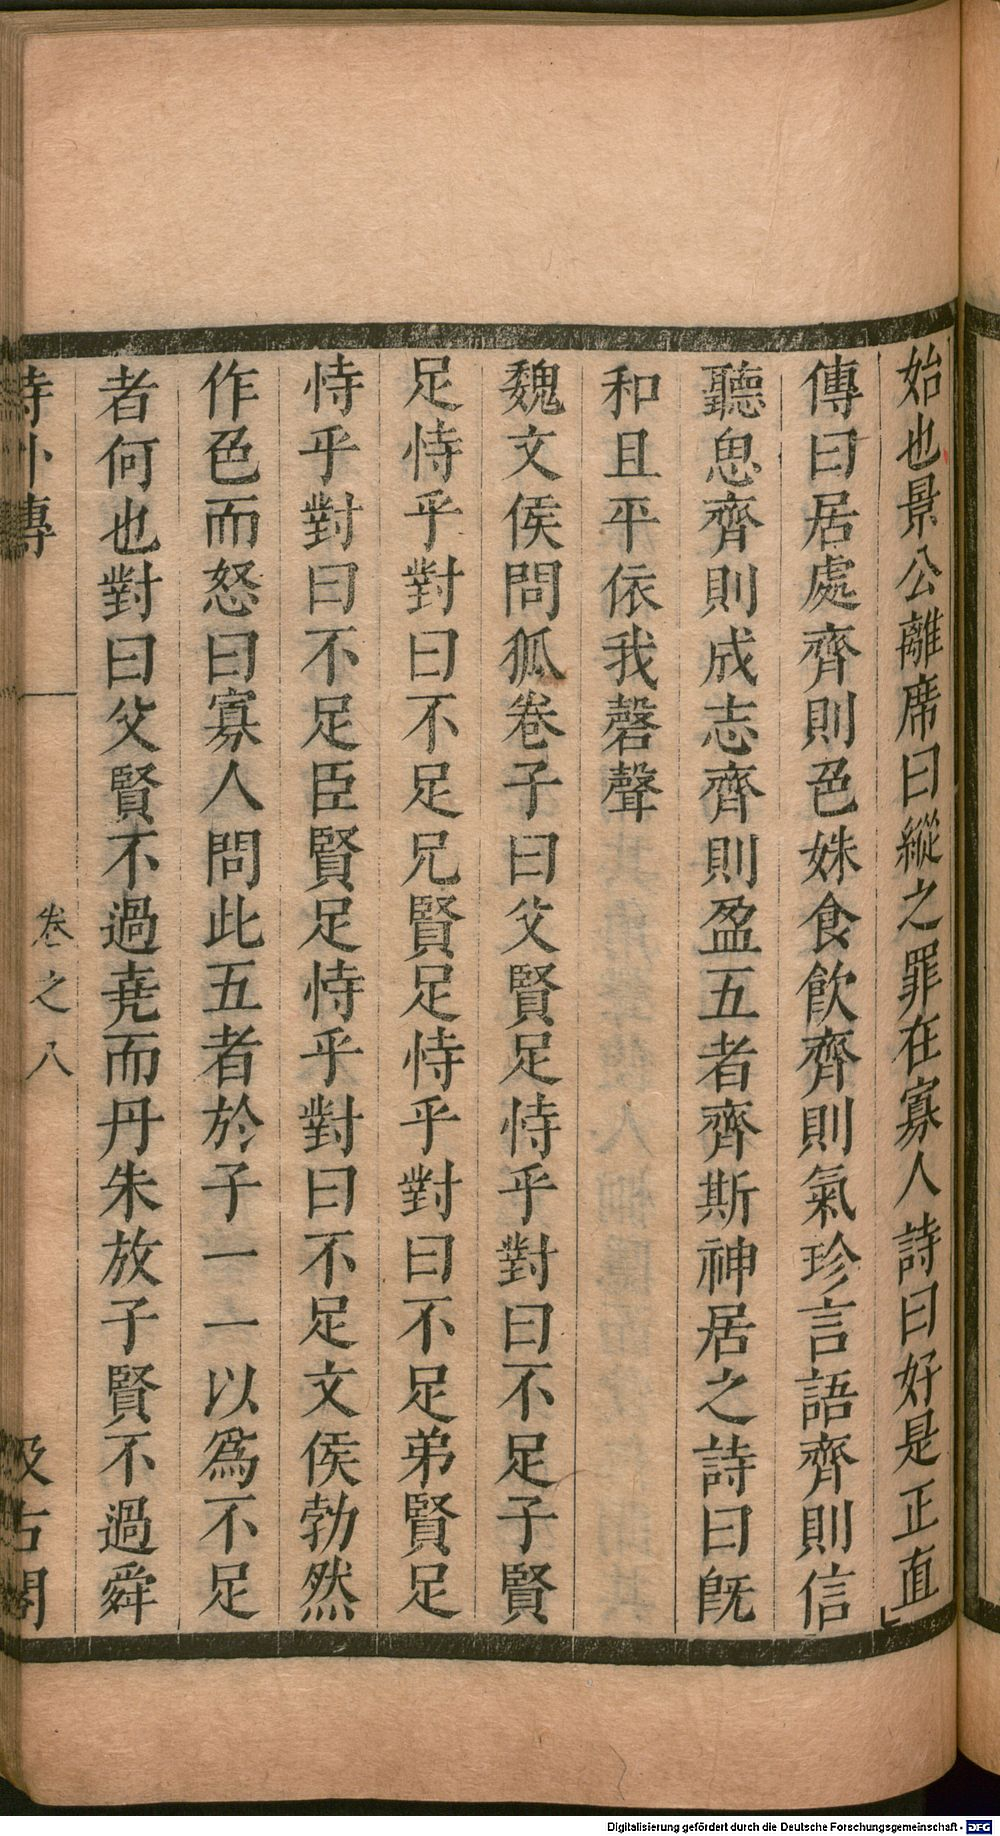 始也景公離席曰縱之罪在寡人詩曰好是正直
傳曰居處齊則色姝食飲齊則氣珍言語齊則信
聽思齊則成志齊則盈五者齊斯神居之詩曰旣
和且平依我磬聲
魏文侯問狐卷子曰父賢足恃乎對曰不足子賢
足恃乎對曰不足兄賢足恃乎對曰不足弟賢足
恃乎對曰不足臣賢足恃乎對曰不足文侯勃然
作色而怒曰寡人問此五者於子一一以爲不足
者何也對曰父賢不過堯而丹朱放子賢不過舜
詩外傳 卷之八 汲古閣
Digitalisierung gefördert durch die Deutsche Forschungsgemeinschaft - DFG